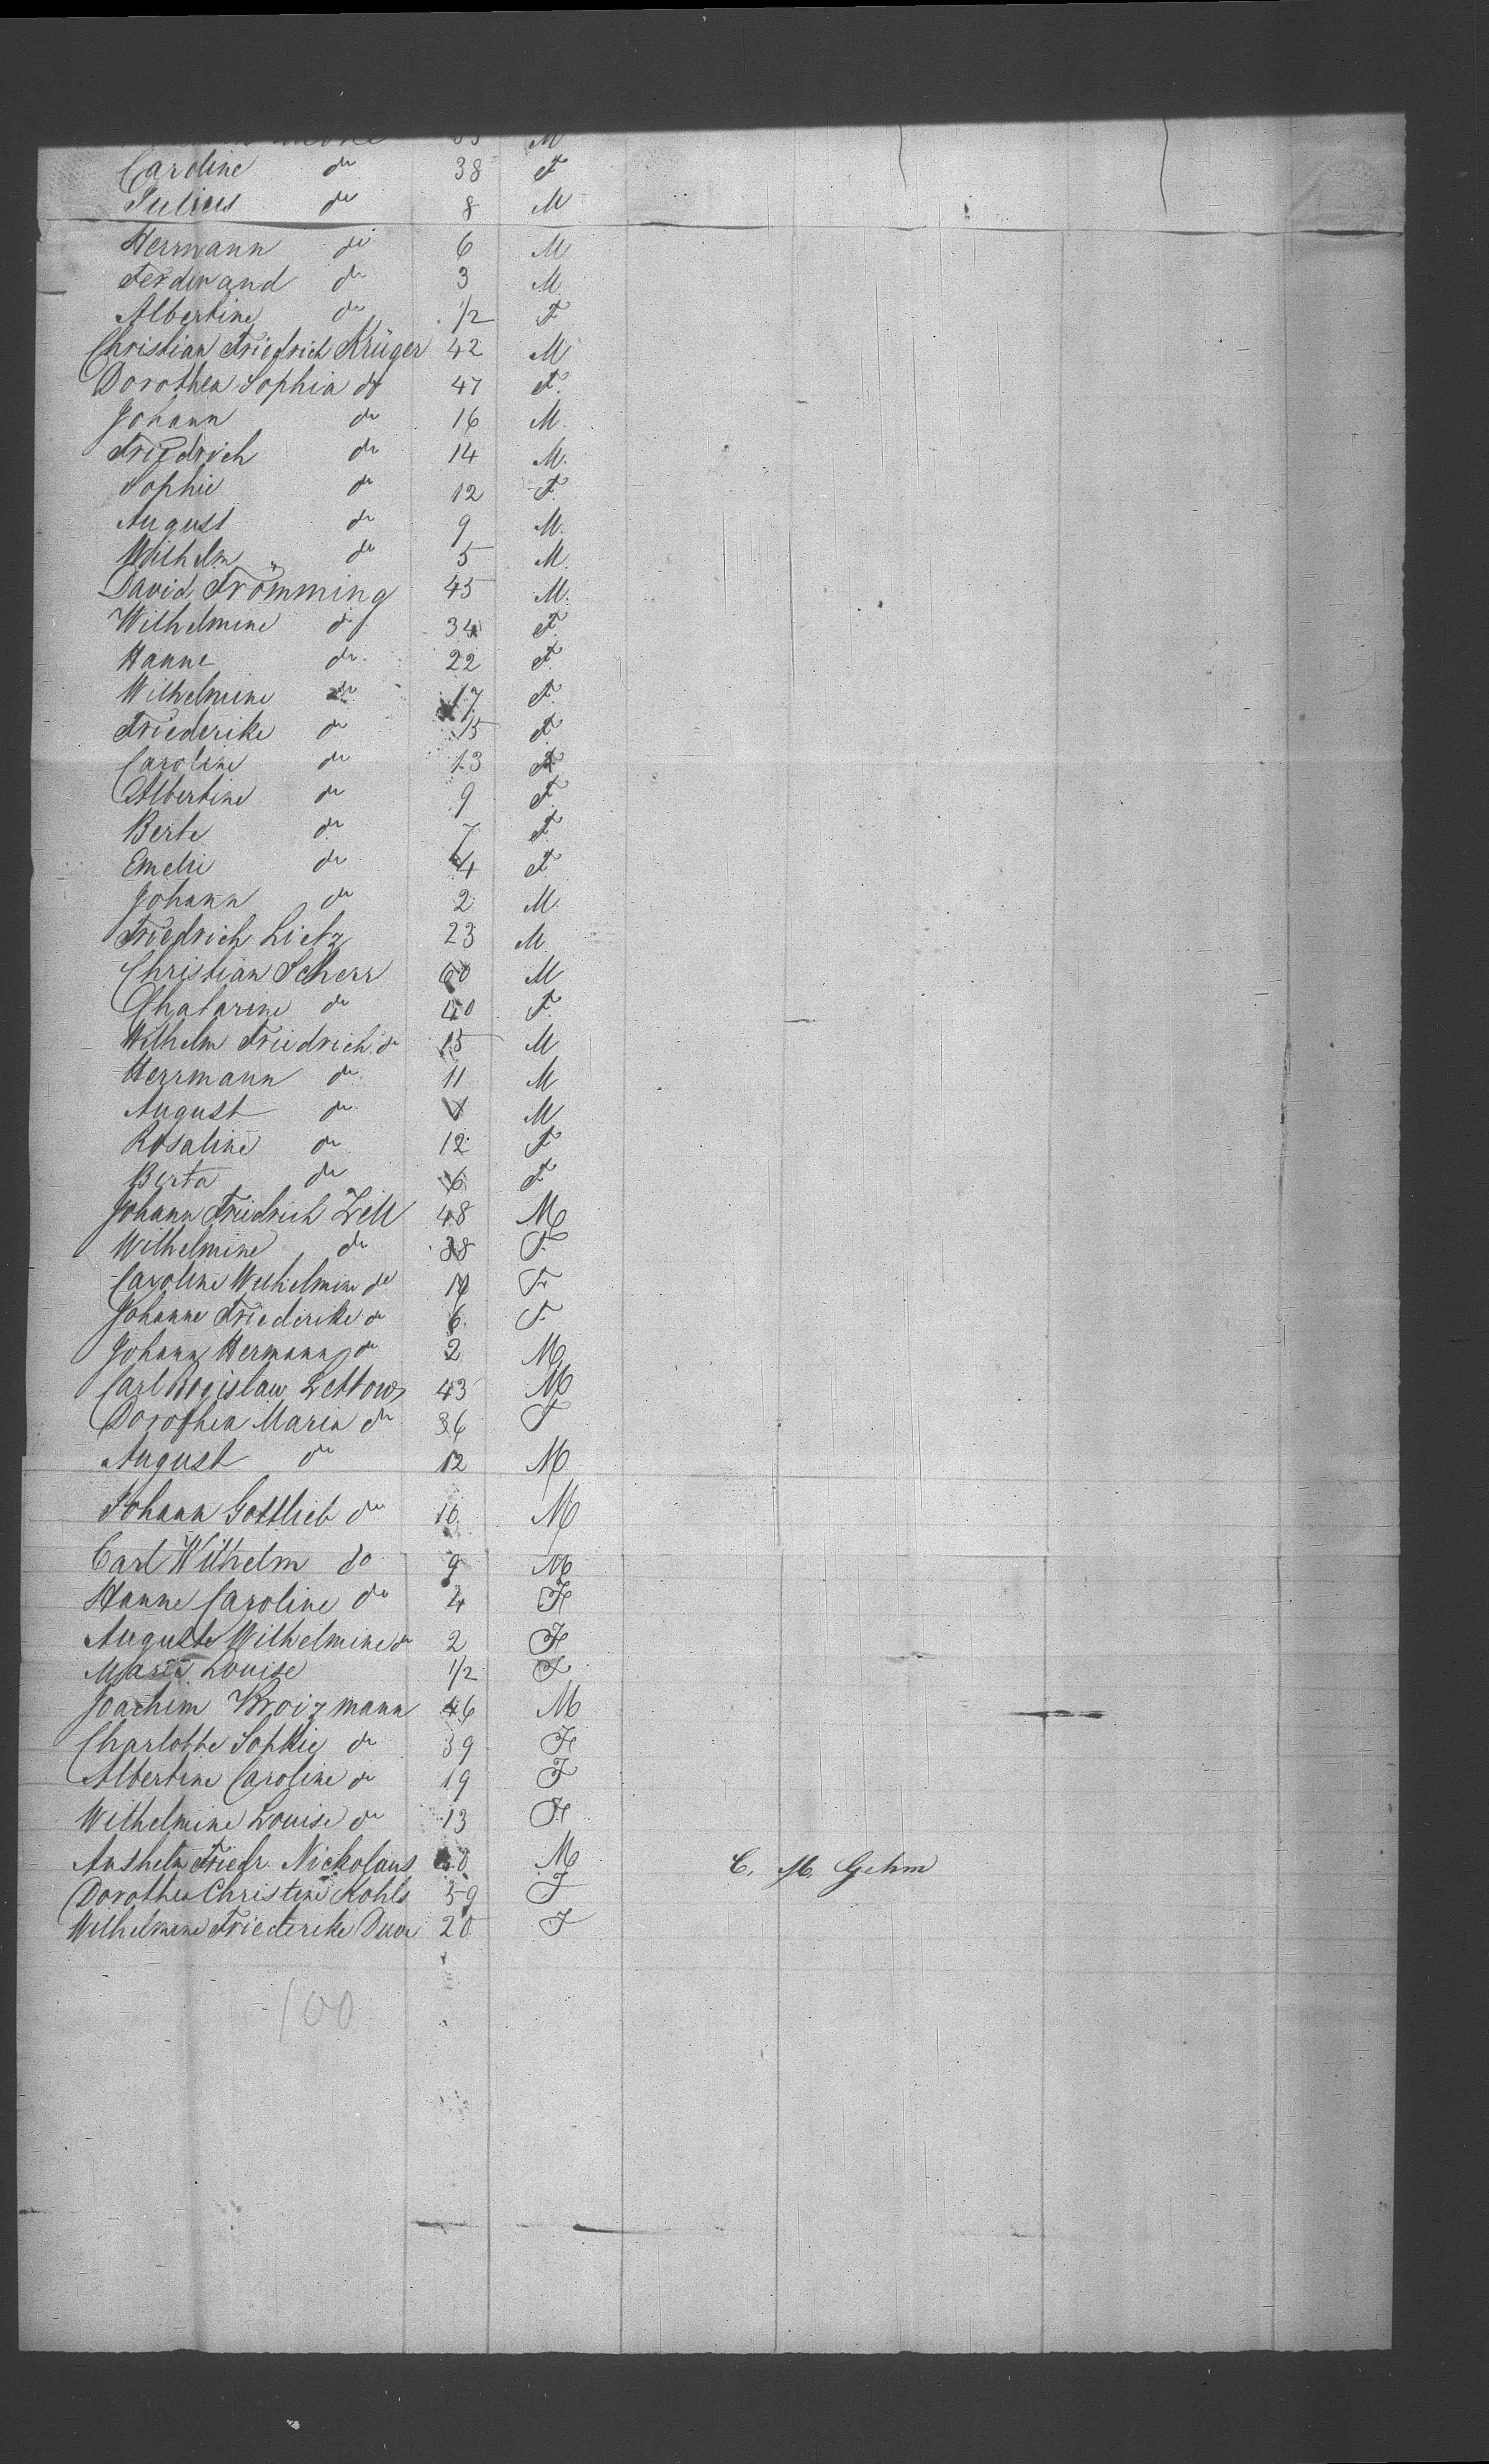 M
Caroline do 38 F
Julius do 8 M
Herrmann do 6 M
Ferdinand do 3 M
Albertine do 1/2 F
Christian Friedrich Krüger 42 M
Dorothea Sophia do 47 F.
Johann do 16 M.
Friedrich do 14 M.
Sophie do 12 F.
August do 9 M.
Wilhelm do 5 M.
David Frömming 45 M.
Wilhelmine do 34 F.
Hanne do 22 F.
Wilhelmine do 17 F.
Friederike do 15 F
Caroline do 13 F
Albertine do 9 F.
Berte do 7 F
Emelie do 4 F
Johann do 2 M.
Friedrich Lietz 23 M
Christian Scherr 60 M
Chatarine do 40 F.
Wilhelm Friedrich do 15 M
Herrmann do 11 M
August do M
Rosaline do 12 F
Berta do 6 F
Johann Friedrich Zell 48 M
Wilhelmine do 38 F.
Caroline Wilhelmine do F
Johanne Friederike do 6 F
Johann Hermann do 2 M
Carl Bogislaw Lettow 43 M
Dorothea Maria do 36 F
August do 12 M
Johann Gottlieb do 10 M
Carl Wilhelm do 9 M
Hanne Caroline do 4 F
Auguste Wilhelmine do 2 F
Marie Louise 1/2 F
Joachim Kroizmann 46 M
Charlotte Sophie do 39 F
Albertine Caroline do 19 F
Wilhelmine Louise do 13 F
Friedr. Nickolaus M C. M. Gehm
Dorothea Christine Kohls 59 F
Wilhelmine Friederike 20 F
100